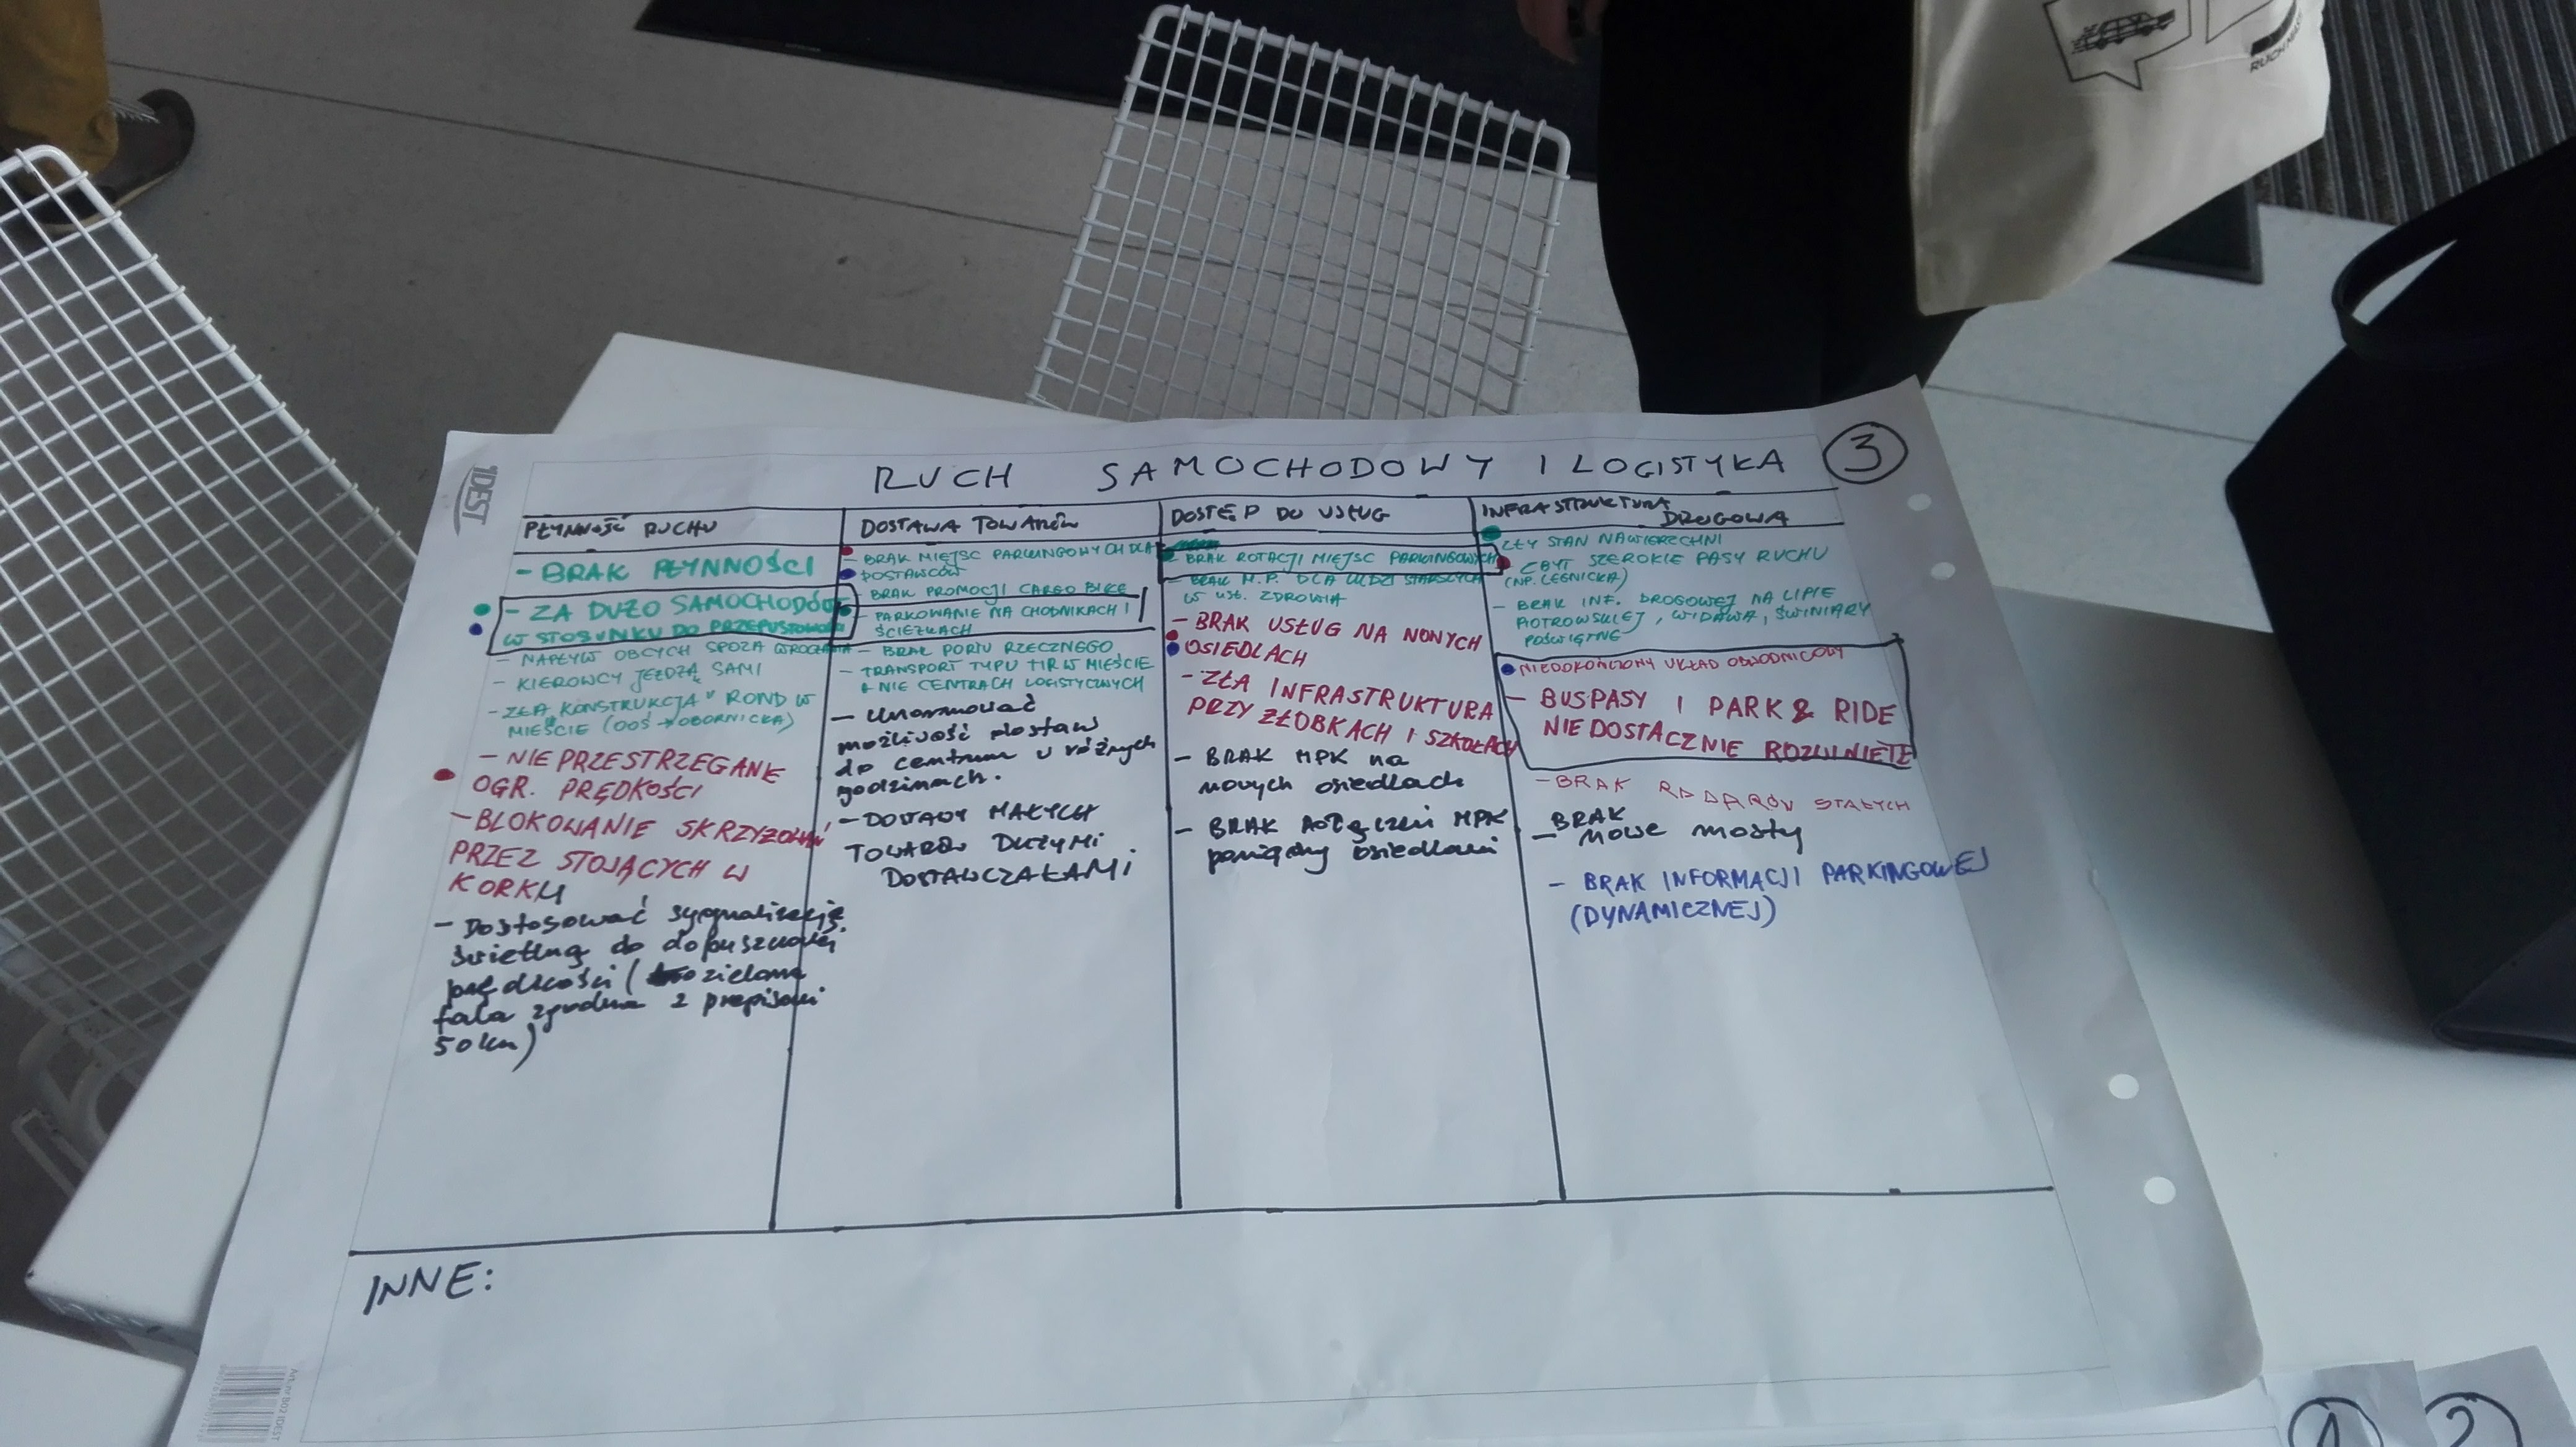 RUCH MIEJ
1DEST
RUCH SAMOCHODOWY I LOGISTYKA
3
PŁYNNOŚĆ RUCHU
- BRAK PŁYNNOŚCI
- ZA DUŻO SAMOCHODÓW
W STOSUNKU DO PRZEPUSTOWOŚCI
- NAPŁYW OBCYCH SPOZA WROCŁAWIA
- KIEROWCY JEŻDŻĄ SAMI
- ZŁA KONSTRUKCJA ROND W
MIEŚCIE (OOŚ → OBORNICKA)
- NIEPRZESTRZEGANIE
OGR. PRĘDKOŚCI
- BLOKOWANIE SKRZYŻOWAŃ
PRZEZ STOJĄCYCH W
KORKU
- Dostosować sygnalizację
świetlną do dopuszczalnej
prędkości ( zielona
fala zgodna z przepisami
50 km)
DOSTAWA TOWARÓW
- BRAK MIEJSC PARKINGOWYCH DLA
DOSTAWCÓW
BRAK PROMOCJI CARGO BIKE
- PARKOWANIE NA CHODNIKACH I
ŚCIEŻKACH
- BRAK PORTU RZECZNEGO
- TRANSPORT TYPU TIR W MIEŚCIE
A NIE CENTRACH LOGISTYCZNYCH
- Unormować
możliwość dostaw
do centrum w różnych
godzinach.
- DOSTAWY MAŁYCH
TOWARÓW DUŻYMI
DOSTAWCZAKAMI
DOSTĘP DO USŁUG
- BRAK ROTACJI MIEJSC PARKINGOWYCH
- BRAK M.P. DLA LUDZI STARSZYCH
W USŁ. ZDROWIA
- BRAK USŁUG NA NOWYCH
OSIEDLACH
- ZŁA INFRASTRUKTURA
PRZY ŻŁOBKACH I SZKOŁACH
- BRAK MPK na
nowych osiedlach
- BRAK połączeń MPK
pomiędzy osiedlami
INFRASTRUKTURA
DROGOWA
ZŁY STAN NAWIERZCHNI
- ZBYT SZEROKIE PASY RUCHU
(NP. LEGNICKA)
- BRAK INF. DROGOWEJ NA LIPIE
PIOTROWSKIEJ, WIDAWA, ŚWINIARY
POŚWIĘTNE
NIEDOKOŃCZONY UKŁAD OBWODNICOWY
- BUSPASY I PARK & RIDE
NIEDOSTACZNIE ROZWINIĘTE
- BRAK RADARÓW STAŁYCH
BRAK
- Nowe mosty
- BRAK INFORMACJI PARKINGOWEJ
(DYNAMICZNEJ)
INNE:
1
2